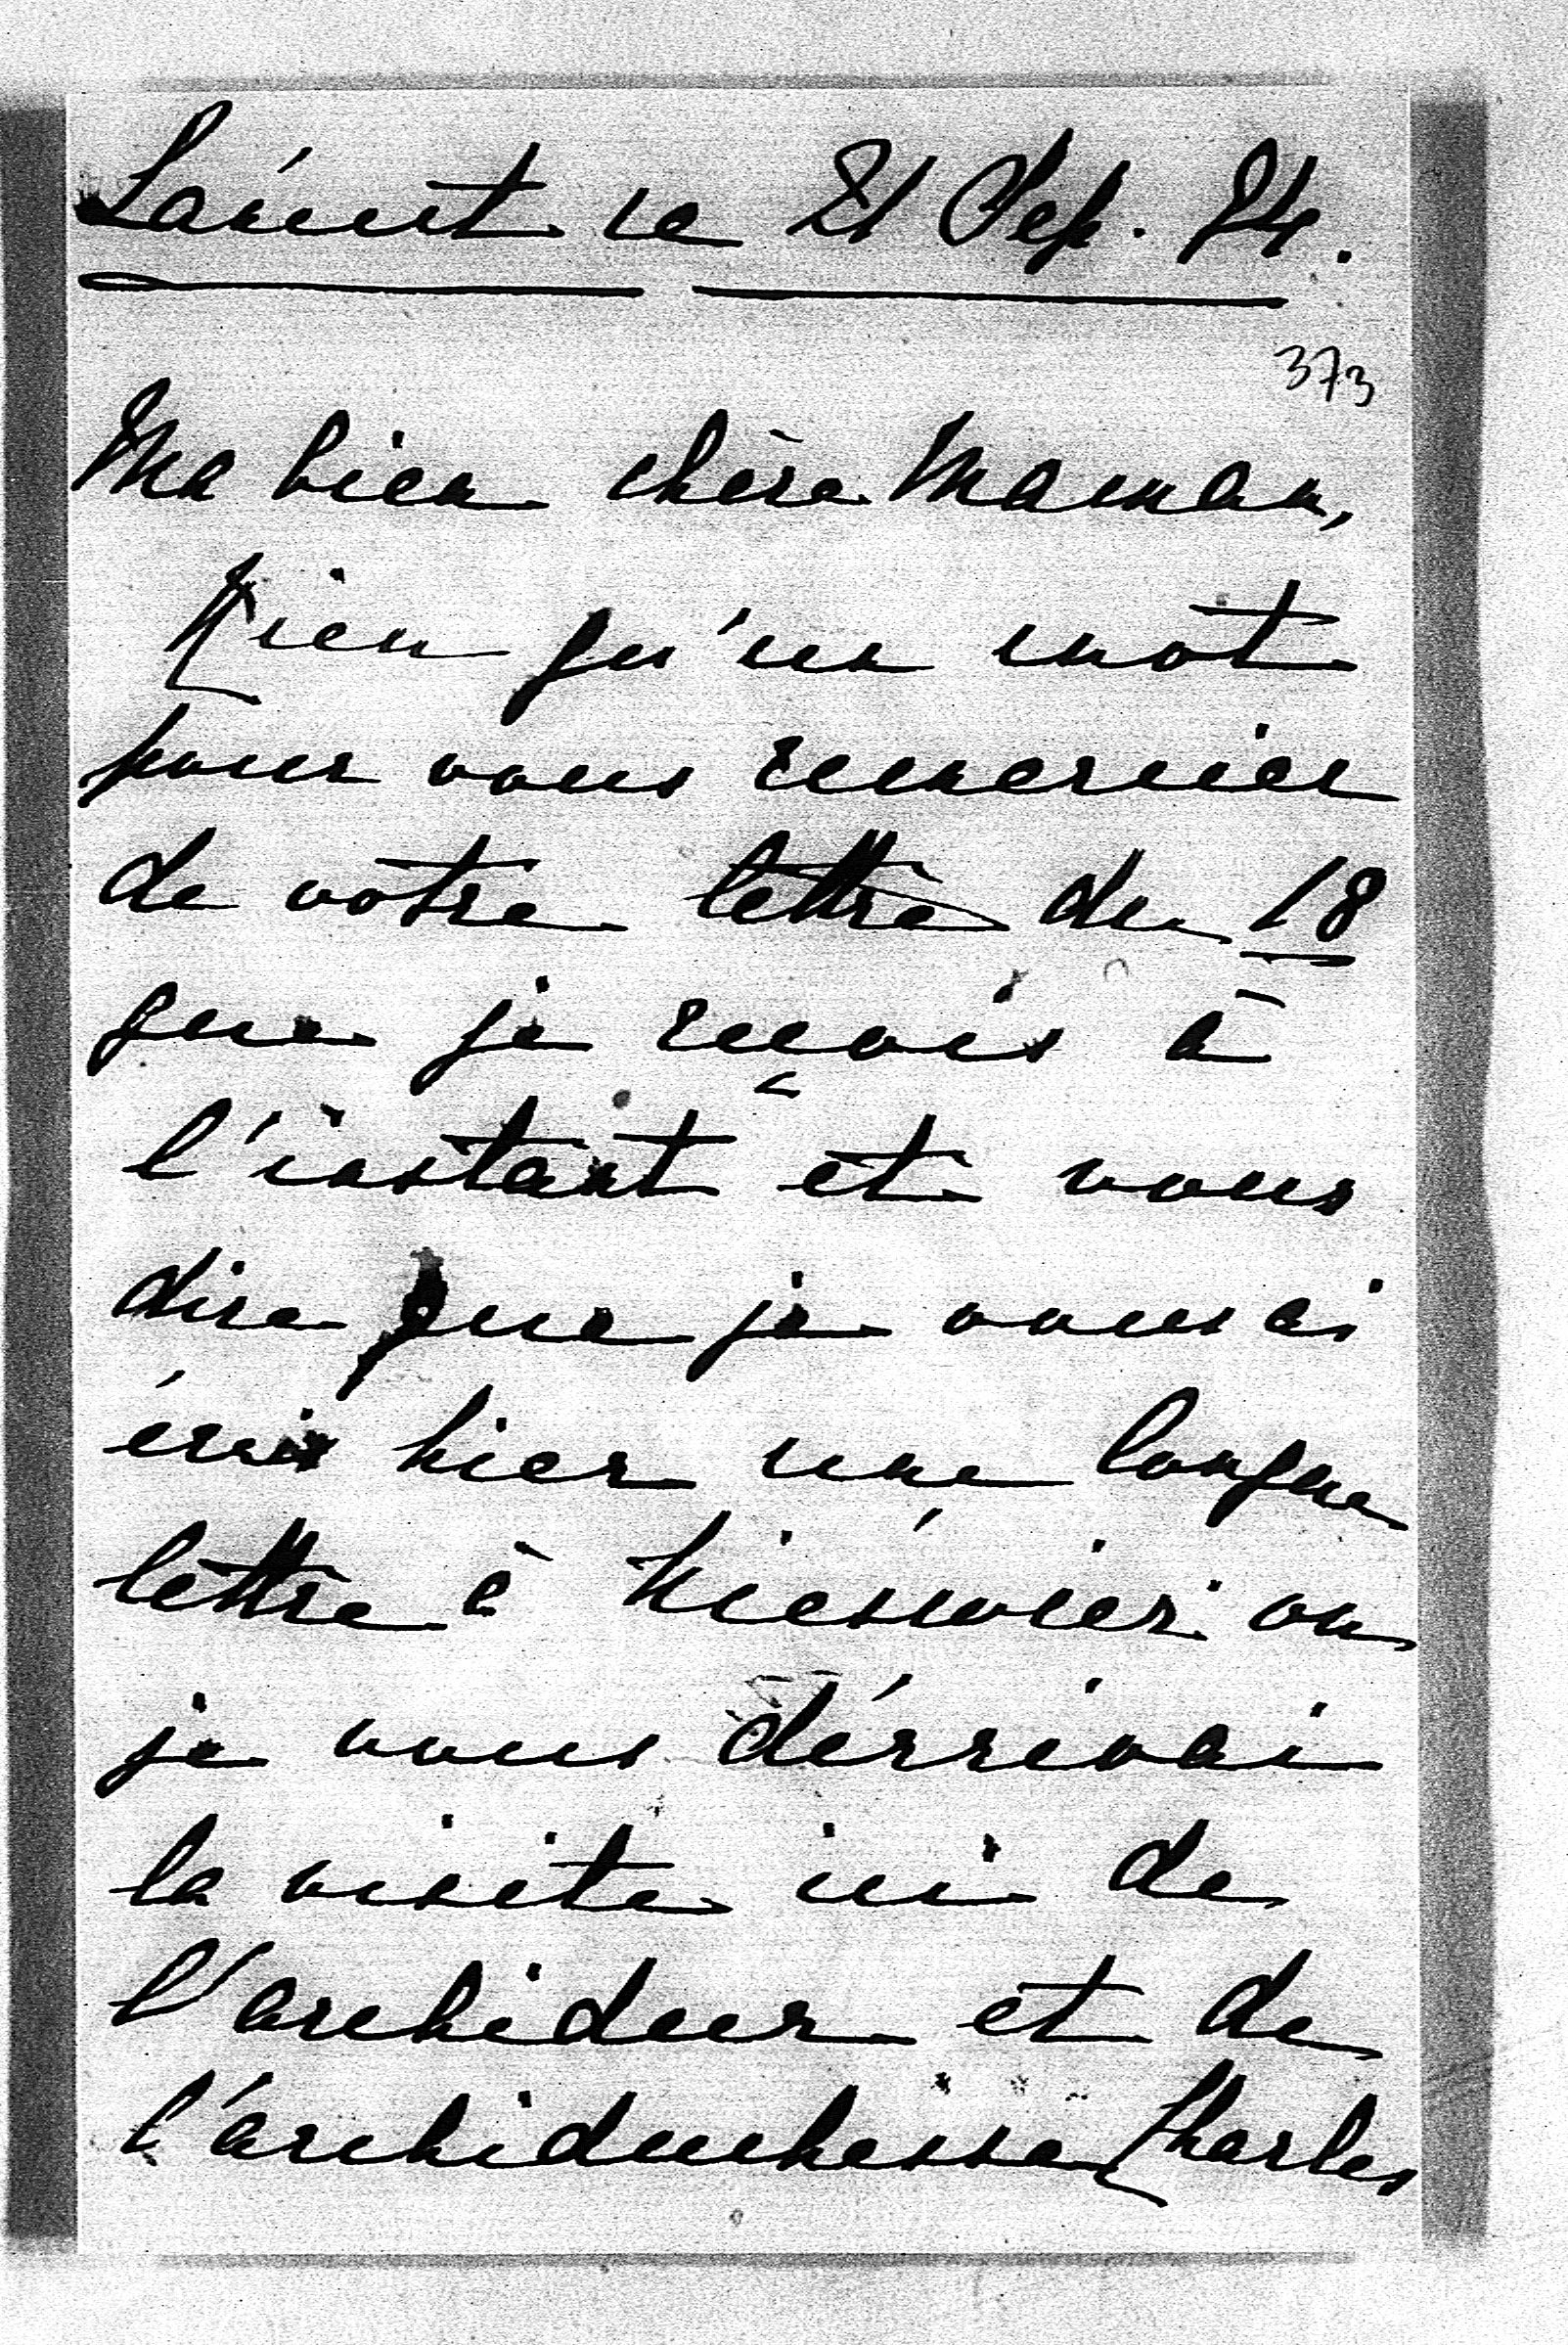 Lancut ce 21 Sep. 84.
373
Ma bien chère Maman,
Rien qu'un mot
pour vous remercier
de votre lettre du 18
que je reçois à
l'instant et vous
dire que je vous ai
écrit hier une longue
lettre à où
je vous décrivai
la visite ici de
l'archiduc et de
l'archiduchesse Charles